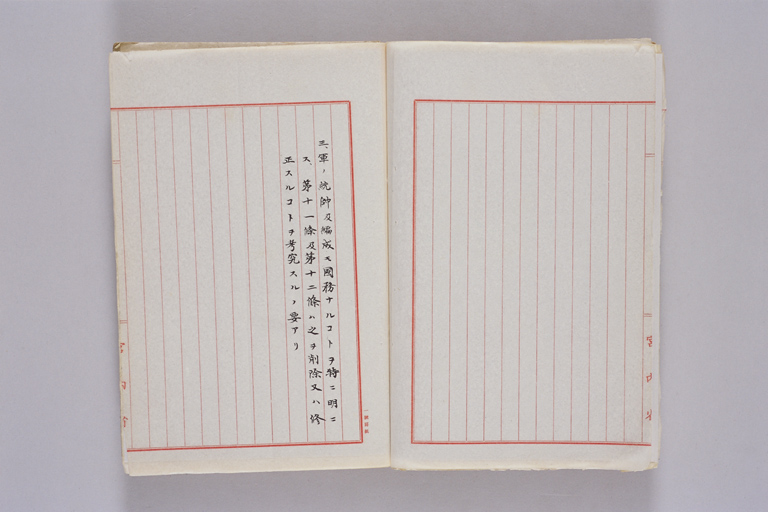 三、軍ノ統帥及編成モ國務ナルコトヲ特ニ明ニ
ス、第十一條及第十二條ハ之ヲ削除又ハ修
正スルコトヲ考究スルノ要アリ
宮内省